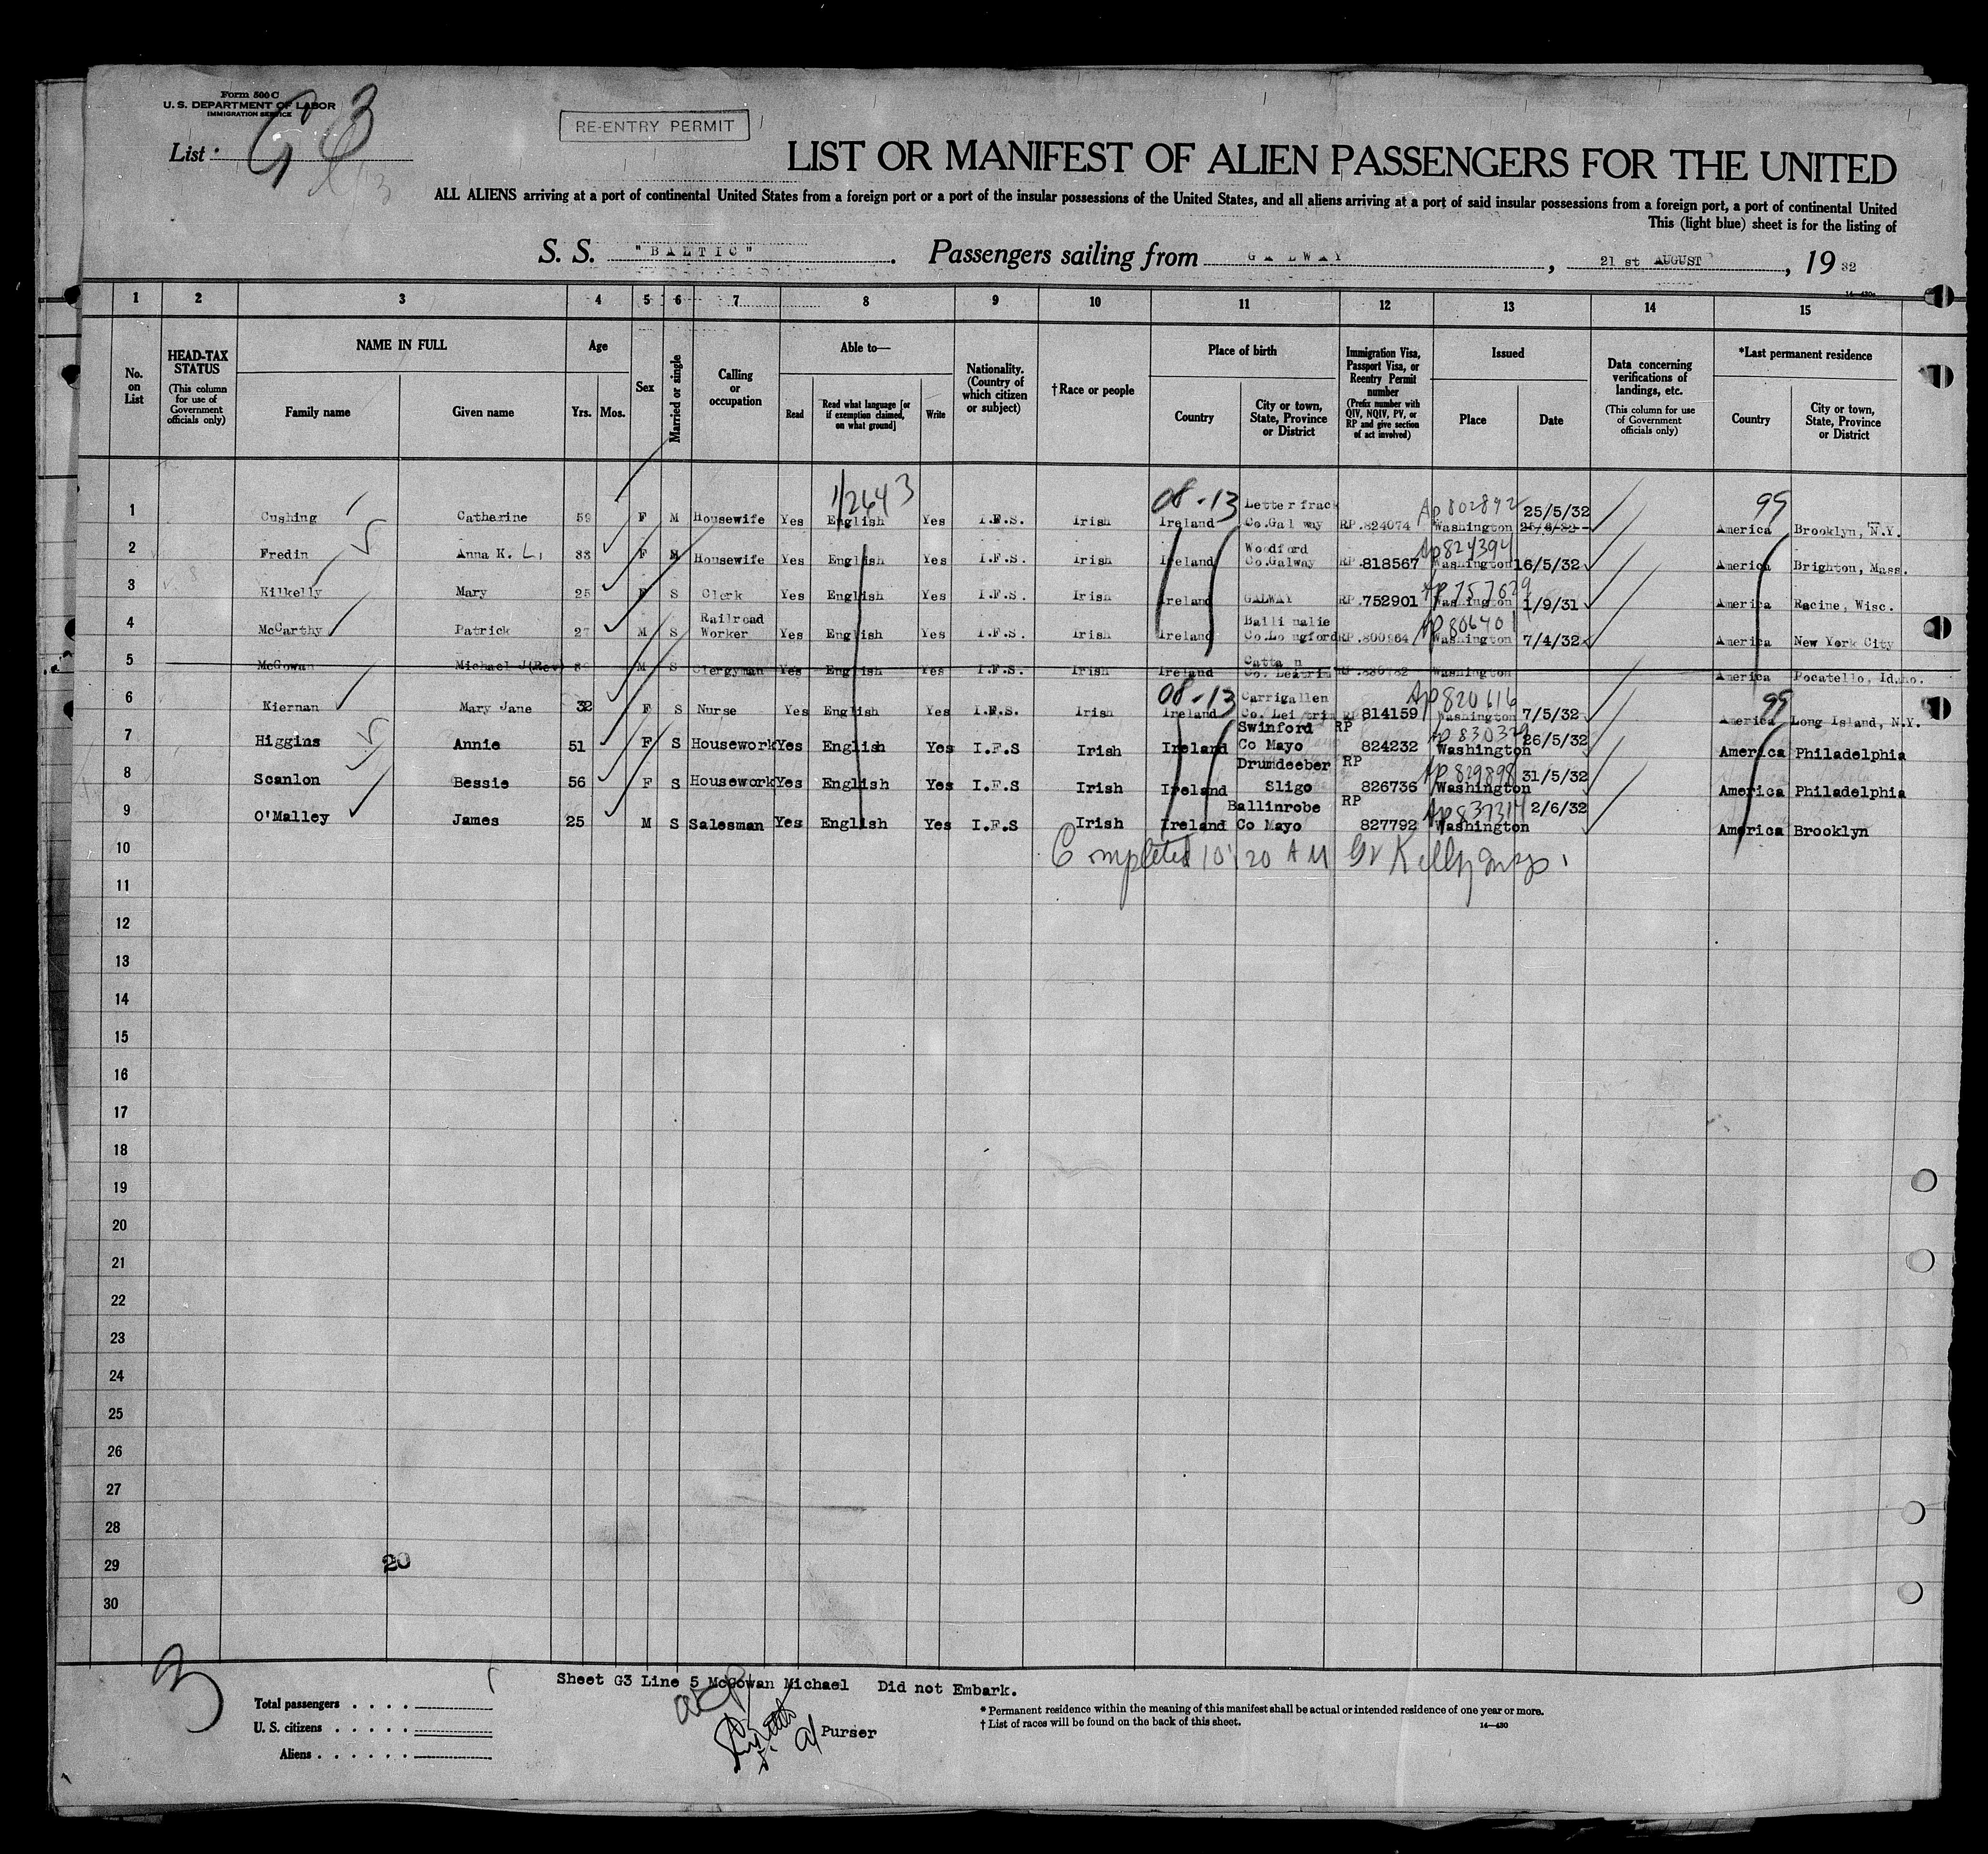 Form 500 C
U. S. DEPARTMENT OF LABOR
IMMIGRATION SERVICE
List G 3
RE-ENTRY PERMIT
LIST OR MANIFEST OF ALIEN PASSENGERS FOR THE UNITED
ALL ALIENS arriving at a port of continental United States from a foreign port or a port of the insular possessions of the United States, and all aliens arriving at a port of said insular possessions from a foreign port, a port of continental United
This (light blue) sheet is for the listing of
S. S. "BALTIC". Passengers sailing from GALWAY, 21 st AUGUST, 19 32
14—430
1 2 3 4 5 6 7 8 9 10 11 12 13 14 15
No. on List
HEAD-TAX STATUS (This column for use of Government officials only)
NAME IN FULL Family name Given name
Age Yrs. Mos.
Sex
Married or single
Calling or occupation
Able to— Read Read what language [or if exemption claimed, on what ground] Write
Nationality. (Country of which citizen or subject)
†Race or people
Place of birth Country City or town, State, Province or District
Immigration Visa, Passport Visa, or Reentry Permit number (Prefix number with QIV, NQIV, PV, or RP and give section of act involved)
Issued Place Date
Data concerning verifications of landings, etc. (This column for use of Government officials only)
*Last permanent residence Country City or town, State, Province or District
1/2643 08-13 Ap 802892 99
1 Cushing Catherine 59 F M Housewife Yes English Yes I.F.S. Irish Ireland Letterfrack Co.Galway RP.824074 Washington 25/5/32 America Brooklyn, N.Y.
Ap 824394
2 Fredin Anna K. L. 33 F M Housewife Yes English Yes I.F.S. Irish Ireland Woodford Co.Galway RP.818567 Washington 16/5/32 America Brighton, Mass.
3 Kilkelly Mary 25 F S Clerk Yes English Yes I.F.S. Irish Ireland GALWAY RP.752901 Washington 1/9/31 America Racine, Wisc.
Ap 806401
4 McCarthy Patrick 27 M S Railroad Worker Yes English Yes I.F.S. Irish Ireland Ballinalie Co.Longford RP.800964 Washington 7/4/32 America New York City
5 McGowan Michael J(Rev) M S Clergyman Yes English Yes I.F.S. Irish Ireland Washington America Pocatello, Idaho.
08-13 Ap 820616 99
6 Kiernan Mary Jane 32 F S Nurse Yes English Yes I.F.S. Irish Ireland Carrigallen Co. Leitrim RP 814159 Washington 7/5/32 America Long Island, N.Y.
Ap 830329
7 Higgins Annie 51 F S Housework Yes English Yes I.F.S Irish Ireland Swinford Co Mayo RP 824232 Washington 26/5/32 America Philadelphia
Ap 829898
8 Scanlon Bessie 56 F S Housework Yes English Yes I.F.S Irish Ireland Drumdeeber Sligo RP 826736 Washington 31/5/32 America Philadelphia
Ap 837314
9 O'Malley James 25 M S Salesman Yes English Yes I.F.S Irish Ireland Ballinrobe Co Mayo RP 827792 Washington 2/6/32 America Brooklyn
10 Completed 10:20 AM Kelly Insp.
11
12
13
14
15
16
17
18
19
20
21
22
23
24
25
26
27
28
29 20
30
3
Sheet G3 Line 5 McGowan Michael Did not Embark.
Total passengers . . . .
U. S. citizens . . . . .
Aliens . . . . . .
Purser
* Permanent residence within the meaning of this manifest shall be actual or intended residence of one year or more.
† List of races will be found on the back of this sheet.
14—430